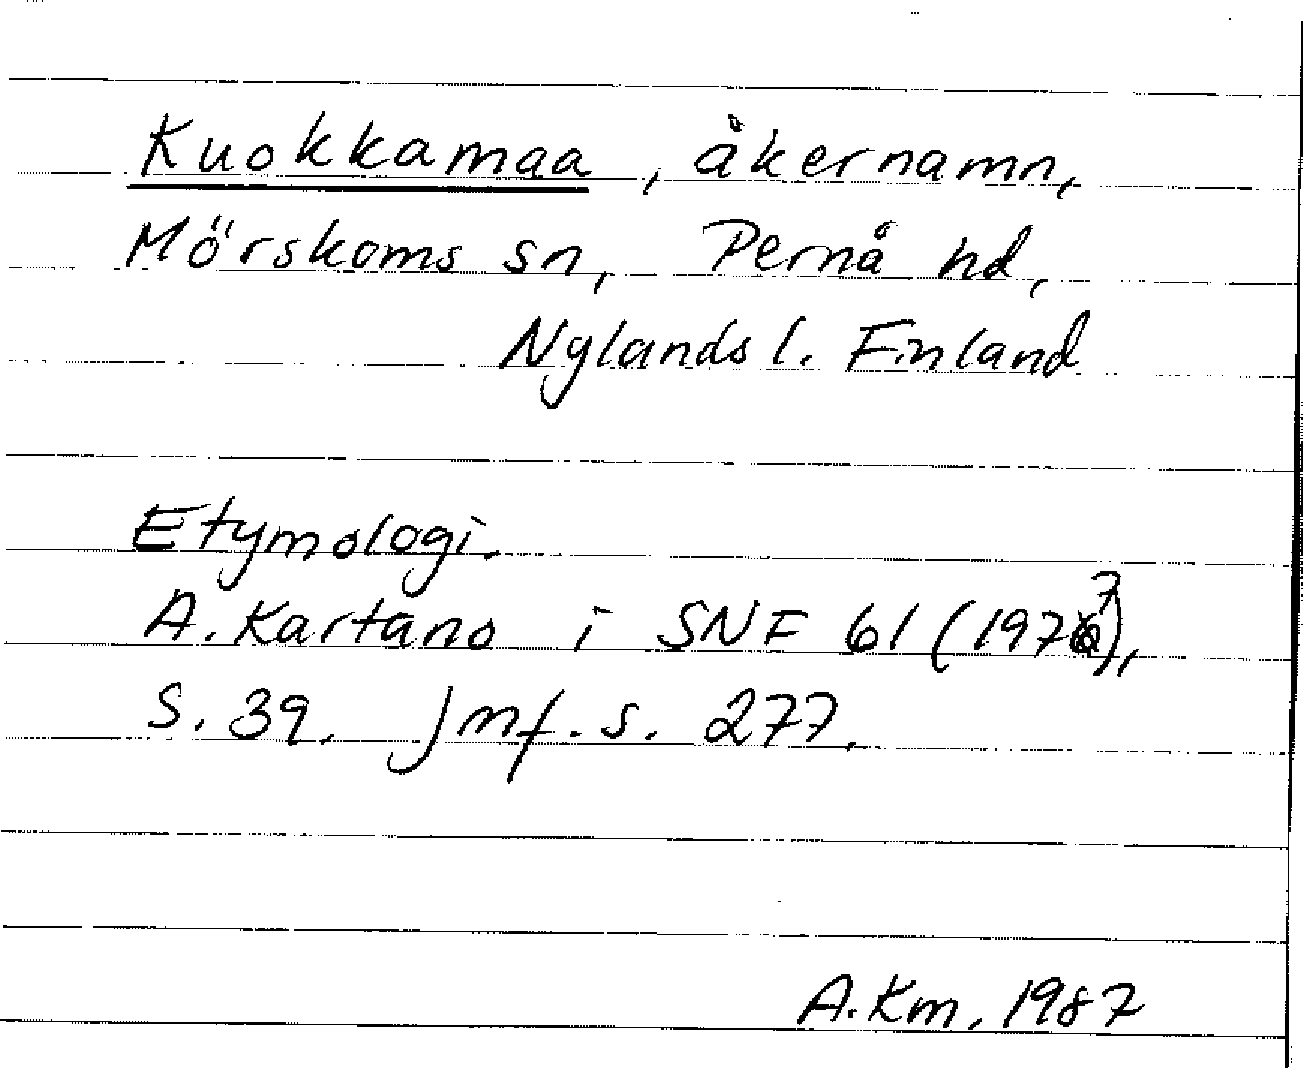 Kuokkamaa, åkernamn,
Mörskoms sn, Pernå hd,
Nylands l. Finland
Etymologi.
A. Kartano i SNF 61 (1977),
S. 39. Jmf. s. 277.
A. Km. 1987